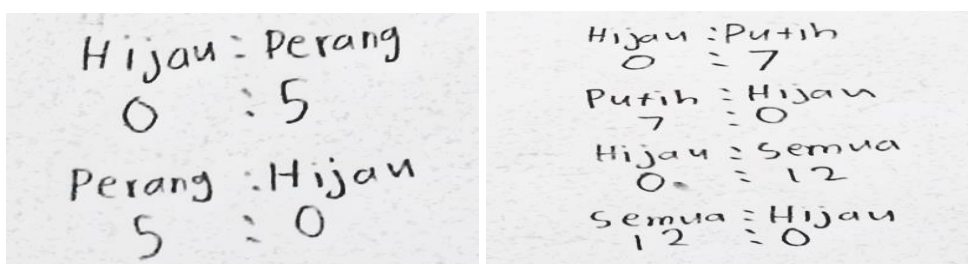 Hijau : Perang
0 : 5
Perang : Hijau
5 : 0
Hijau : Putih
0 : 7
Putih : Hijau
7 : 0
Hijau : Semua
0 : 12
Semua : Hijau
12 : 0